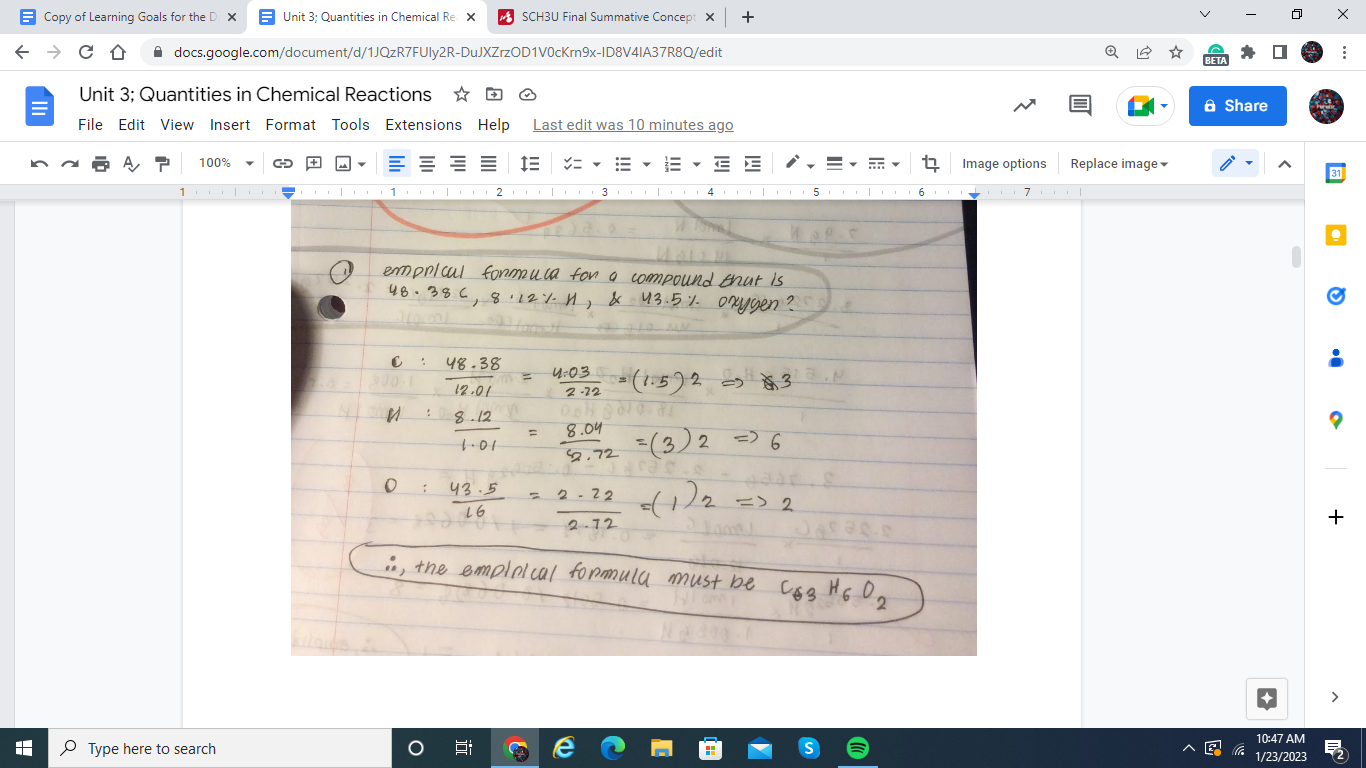 Copy of Learning Goals for the D
Unit 3; Quantities in Chemical Re
SCH3U Final Summative Concept
docs.google.com/document/d/1JQzR7FUIy2R-DuJXZrzOD1V0cKrn9x-ID8V4IA37R8Q/edit
BETA
Unit 3; Quantities in Chemical Reactions
File Edit View Insert Format Tools Extensions Help Last edit was 10 minutes ago
Share
100%
Image options
Replace image
31
1 1 2 3 4 5 6 7
① empirical formula for a compound that is
48.38 C, 8.12% H, & 43.5% oxygen?
C : 48.38/12.01 = 4.03/2.72 = (1.5) 2 => 3
H : 8.12/1.01 = 8.04/2.72 = (3) 2 => 6
O : 43.5/16 = 2.72/2.72 = (1) 2 => 2
∴, the empirical formula must be C3 H6 O2
Type here to search
10:47 AM
1/23/2023
2